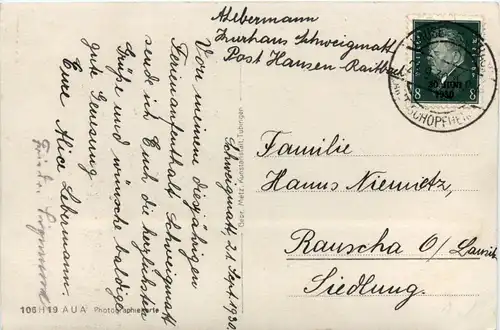 A. Lebermann
Kurhaus Schweigmatt
Post Hausen-Raitbach
Schweigmatt, 21. Sept. 1930
Von meinem diesjährigen
Ferienaufenthalt Schweigmatt
send ich Euch die herzlichsten
Grüße und wünsche baldige
gute Genesung
Eure Alice Lebermann.
Familie
Hanns Niemetz,
Rauscha O/Lausitz
Siedlung.
8 8
30. JUNI
1930
SCHOPFHEIM
Gebr. Metz, Kunstanstalt, Tübingen
106 H 19 AUA Photographiekarte